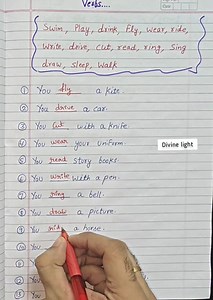 Verbs....
Swim, Play, drink, Fly, wear, ride,
Write, drive, Cut, read, ring, Sing
draw, sleep, Walk
① You fly a kite.
② You drive a car.
③ You cut with a knife.
④ You wear your uniform.
⑤ You read story books.
⑥ You write with a pen.
⑦ You ring a bell.
⑧ You draw a picture.
⑨ You rid a horse.
⑩ You
⑪ You
⑫ You
⑬ You
Divine light